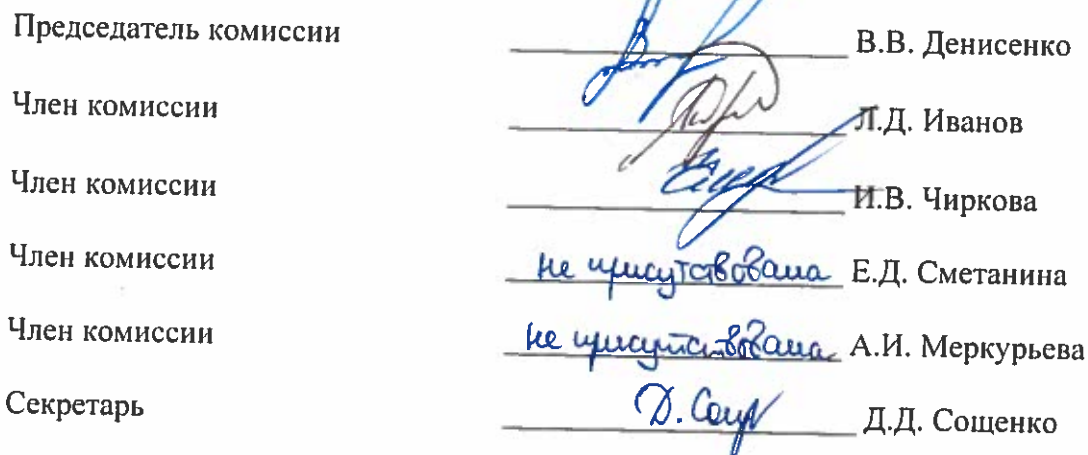 Председатель комиссии В.В. Денисенко
Член комиссии Л.Д. Иванов
Член комиссии И.В. Чиркова
Член комиссии не присутствовала Е.Д. Сметанина
Член комиссии не присутствовала А.И. Меркурьева
Секретарь Д.Д. Сощенко